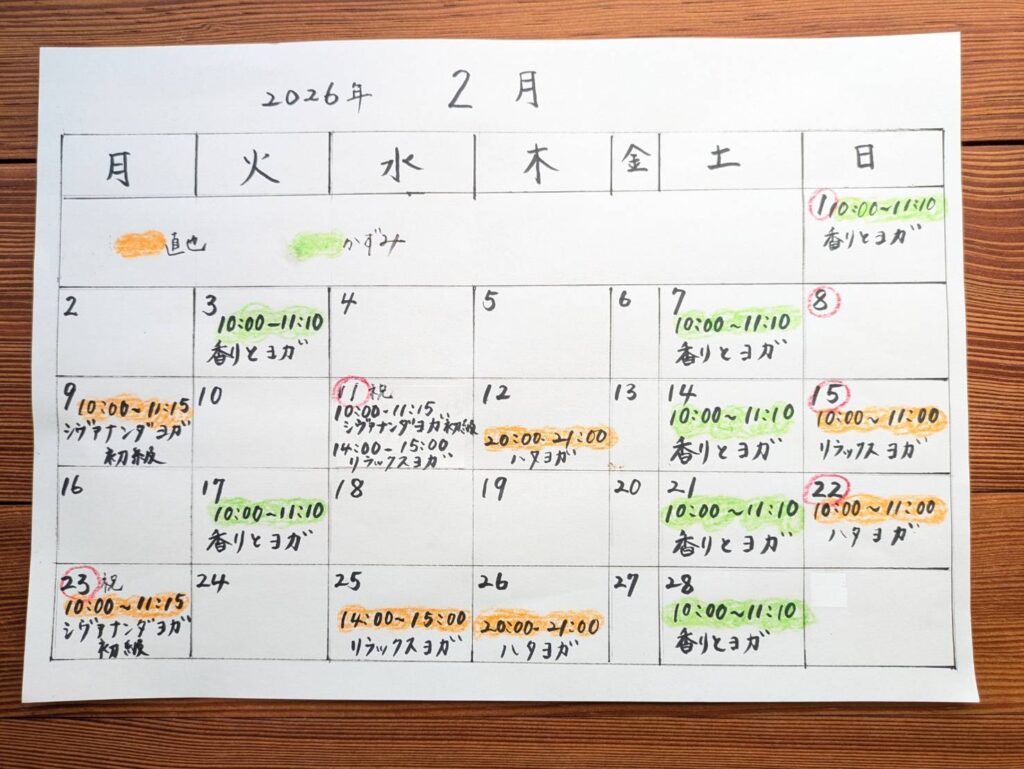 2026年 2月
月 火 水 木 金 土 日
直也 かずみ
1 10:00~11:10
香りとヨガ
2 3 4 5 6 7 8
10:00-11:10 10:00~11:10
香りとヨガ 香りとヨガ
9 10 11 祝 12 13 14 15
10:00~11:15
シヴァナンダヨガ
初級
10:00-11:15
シヴァナンダヨガ初級
14:00-15:00
リラックスヨガ
20:00-21:00
ハタヨガ
10:00~11:10
香りとヨガ
10:00~11:00
リラックスヨガ
16 17 18 19 20 21 22
10:00~11:10
香りとヨガ
10:00~11:10
香りとヨガ
10:00~11:00
ハタヨガ
23 祝 24 25 26 27 28
10:00~11:15
シヴァナンダヨガ
初級
14:00~15:00
リラックスヨガ
20:00-21:00
ハタヨガ
10:00~11:10
香りとヨガ